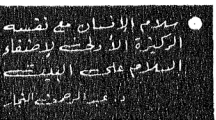 سلام الإنسان مع نفسه
الركيزة الأولى لإضفاء
السلام على البيت
د. عبد الرحمن النجار